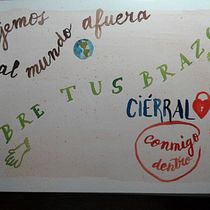 jemos
al mundo afuera
BRE TUS BRAZO
CIÉRRALO
Conmigo
dentro